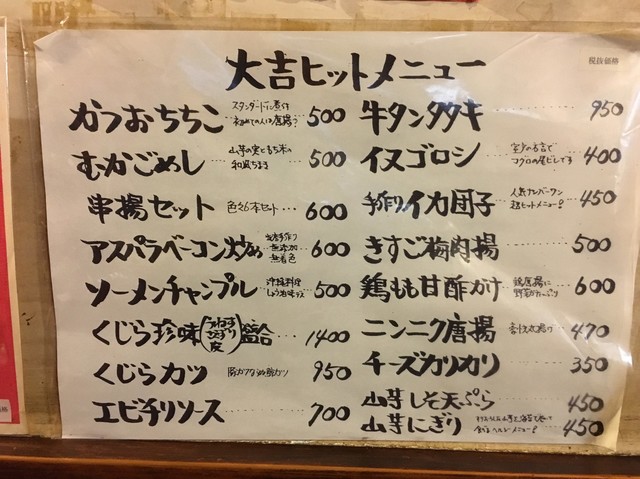 税抜価格
大吉ヒットメニュー
かつおちちこ スタンダードな煮付 初めての人は唐揚? 500
むかごめし 山芋の実ともち米の 和風ちまき 500
串揚セット 色々6本セット 600
アスパラベーコン炒め 無添加 無着色 600
ソーメンチャンプル 沖縄料理 しょうゆ味 500
くじら珍味 さえずり 皮 盛合 1400
くじらカツ 950
エビチリソース 700
牛タンタタキ 950
イヌゴロシ 室戸の方言で コクロの尾ビレです 400
手作りイカ団子 人気ナンバーワン 超ヒットメニュー! 450
きすご梅肉揚 500
鶏もも甘酢がけ 鶏唐揚に 野菜たっぷり 600
ニンニク唐揚 470
チーズカリカリ 350
山芋しそ天ぷら 450
山芋にぎり 450